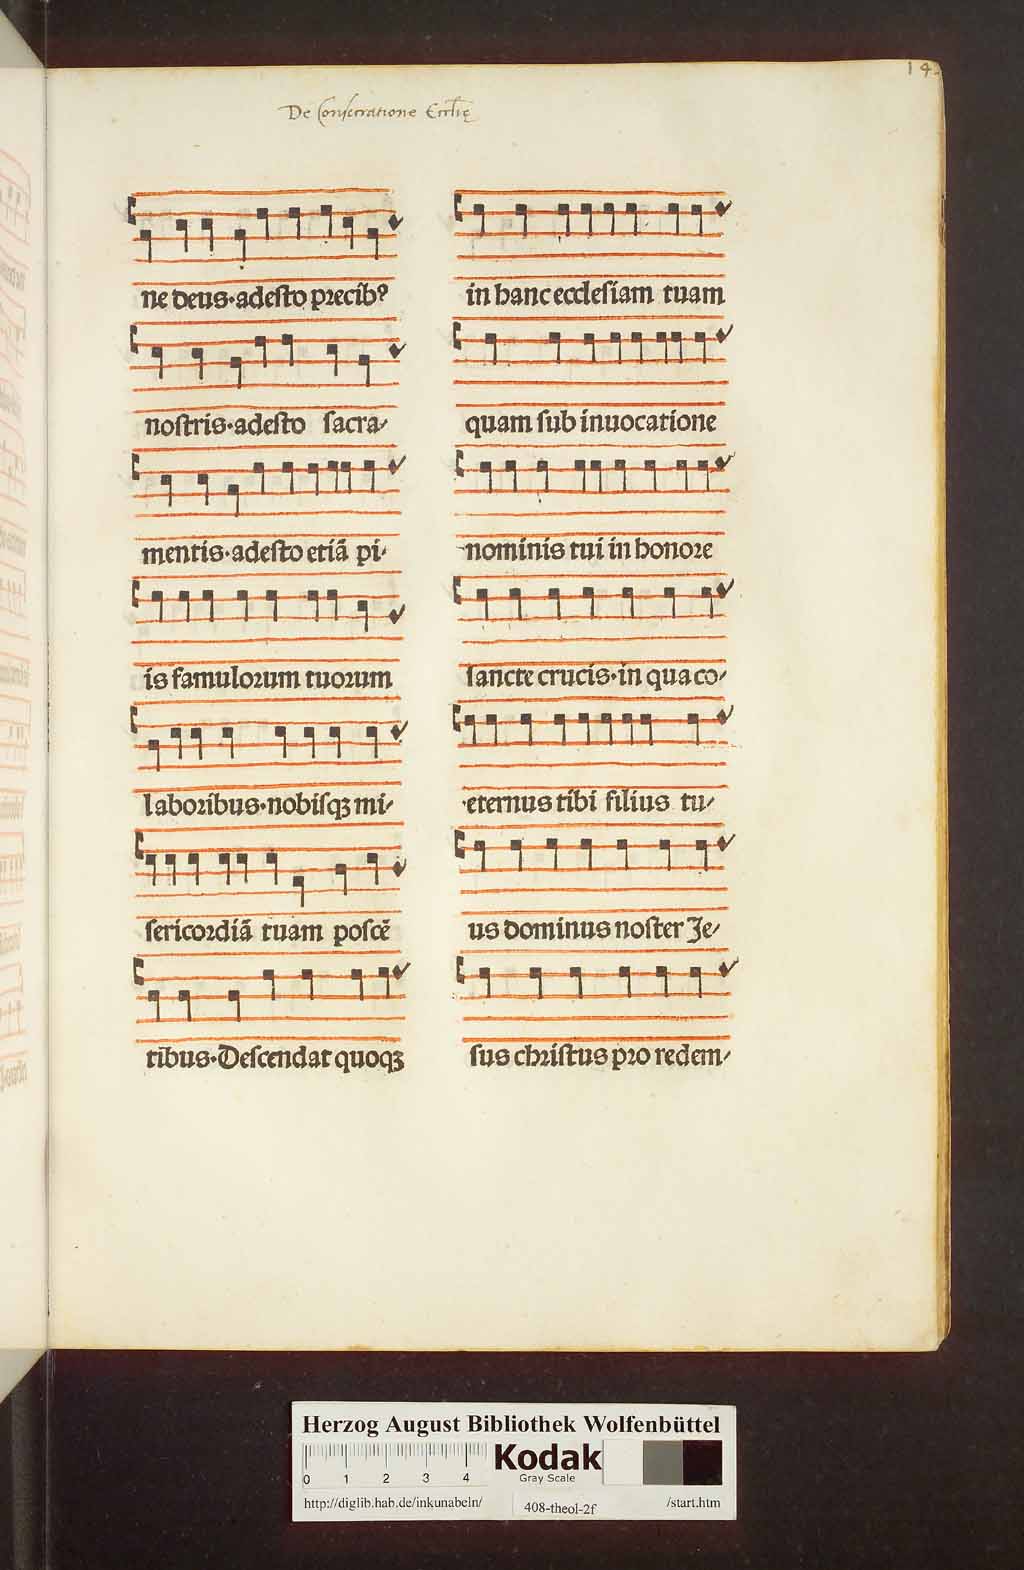 14
De Consecratione Eccl̄ię
ne deus·adesto precibꝰ
nostris·adesto sacra⸗
mentis·adesto etiā pi⸗
is famulorum tuorum
laboribus·nobisqꝫ mi⸗
sericordiā tuam poscē
tibus·Descendat quoqꝫ
in hanc ecclesiam tuam
quam sub inuocatione
nominis tui in honore
sancte crucis·in qua co⸗
eternus tibi filius tu⸗
us dominus noster Je⸗
sus christus pro redem⸗
Herzog August Bibliothek Wolfenbüttel
0 1 2 3 4
Kodak
Gray Scale
http://diglib.hab.de/inkunabeln/ 408-theol-2f /start.htm